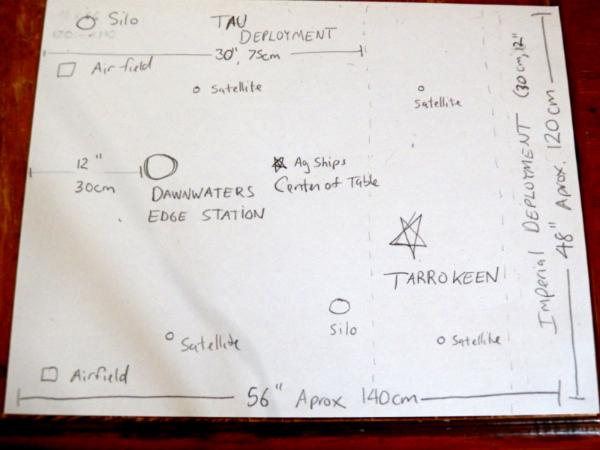 Silo
TAU
DEPLOYMENT
30", 75cm
Airfield
Satellite
Satellite
12"
30cm
Ag Ships
Center of Table
DAWNWATERS
EDGE STATION
TARROKEEN
Silo
Satellite
Satellite
Airfield
56" Aprox 140cm
Imperial DEPLOYMENT (30cm, 12"
48" Aprox. 120cm